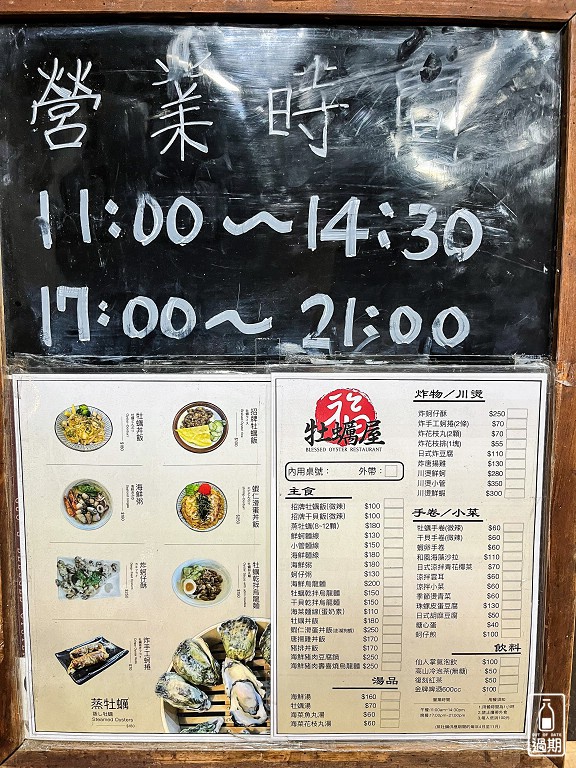 營業時間
11:00～14:30
17:00～21:00
牡蠣丼飯
招牌牡蠣飯
海鮮粥
蝦仁滑蛋丼飯
炸蚵仔酥
牡蠣乾拌烏龍麵
炸手工蚵捲
蒸牡蠣
蒸し牡蠣
Steamed Oysters
牡蠣屋
BLESSED OYSTER RESTAURANT
內用桌號： 外帶：
主食
招牌牡蠣飯(微辣) $100
招牌干貝飯(微辣) $100
蒸牡蠣(8-12顆) $180
鮮蚵麵線 $130
小管麵線 $150
海鮮麵線 $180
海鮮粥 $190
蚵仔粥 $130
海鮮烏龍麵 $200
牡蠣乾拌烏龍麵 $150
干貝乾拌烏龍麵 $150
海菜麵線(蛋奶素) $110
牡蠣丼飯 $180
蝦仁滑蛋丼飯 $250
唐揚雞丼飯 $170
豬排丼飯 $170
海鮮豬肉豆腐鍋 $250
海鮮豬肉壽喜燒烏龍麵 $250
湯品
海鮮湯 $160
牡蠣湯 $70
海菜魚丸湯 $60
海菜花枝丸湯 $60
炸物/川燙
炸蚵仔酥 $250
炸手工蚵捲(2條) $70
炸花枝丸(2顆) $70
炸花枝排(1塊) $55
日式炸豆腐 $110
炸唐揚雞 $130
川燙鮮蚵 $280
川燙小管 $350
川燙鮮蝦 $300
手卷/小菜
牡蠣手卷(微辣) $60
干貝手卷(微辣) $60
蝦卵手卷 $60
和風海藻沙拉 $110
日式涼拌青花椰菜 $70
涼拌雲耳 $60
涼拌小菜 $60
季節燙青菜 $60
珠螺皮蛋豆腐 $130
日式胡麻豆腐 $50
糖心蛋 $40
蚵仔煎 $100
飲料
仙人掌氣泡飲 $100
高山冷泡茶(無糖) $50
復刻紅茶 $50
金牌啤酒600cc $100
營業時間
午餐11:00am-14:30pm
晚餐17:00pm-21:00pm
OUT OF DATE
過期